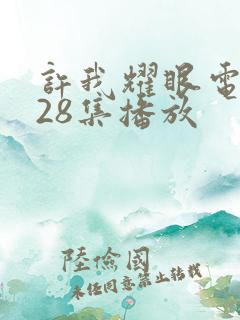 許我耀眼電
28集播放
陸儉國
未经同意禁止转载